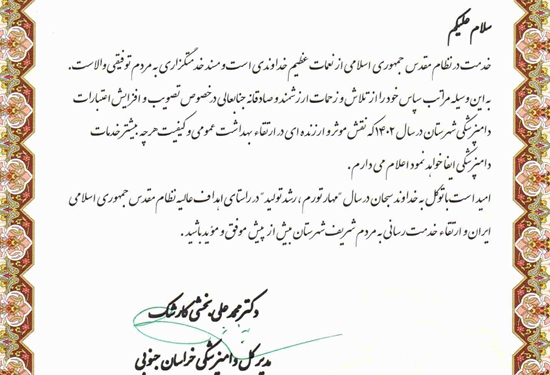 سلام علیکم
خدمت در نظام مقدس جمهوری اسلامی از نعمات عظیم خداوندی است و مسند خدمتگزاری به مردم توفیقی والاست.
به این وسیله مراتب سپاس خود را از تلاش و زحمات ارزشمند و صادقانه جنابعالی در خصوص تصویب و افزایش اعتبارات
دامپزشکی شهرستان در سال ۱۴۰۲ که نقش موثر و ارزنده ای در ارتقاء بهداشت عمومی و کیفیت هرچه بیشتر خدمات
دامپزشکی ایفا خواهد نمود اعلام می دارم.
امید است با توکل به خداوند سبحان در سال "مهار تورم، رشد تولید" در راستای اهداف عالیه نظام مقدس جمهوری اسلامی
ایران و ارتقاء خدمت رسانی به مردم شریف شهرستان بیش از پیش موفق و مؤید باشید.
دکتر محمد علی بخشی کارشک
مدیر کل دامپزشکی خراسان جنوبی